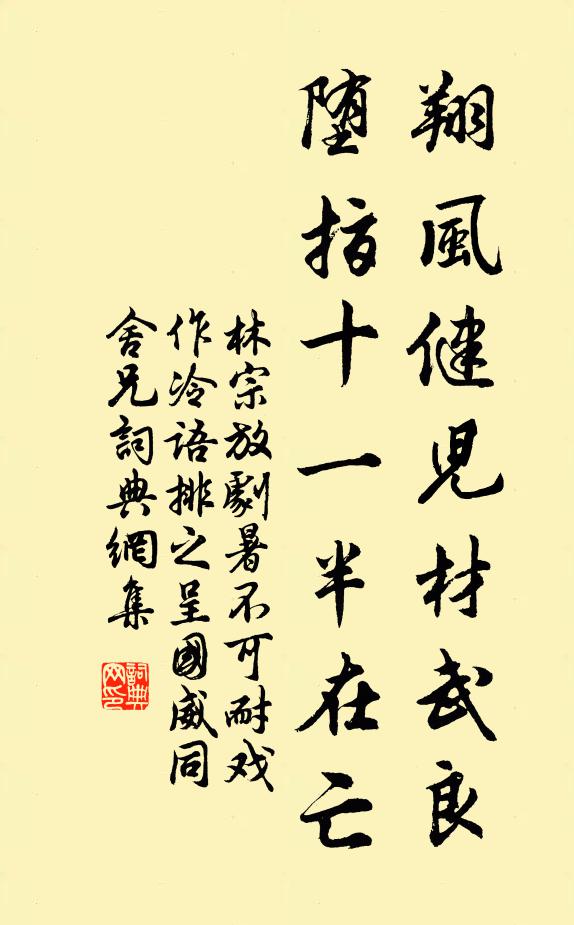 翔風健児材武良
堕指十一半在亡
林宗放劇暑不可耐戏
作冷語排之呈國威同
舍兄詞典網集
詞典網印